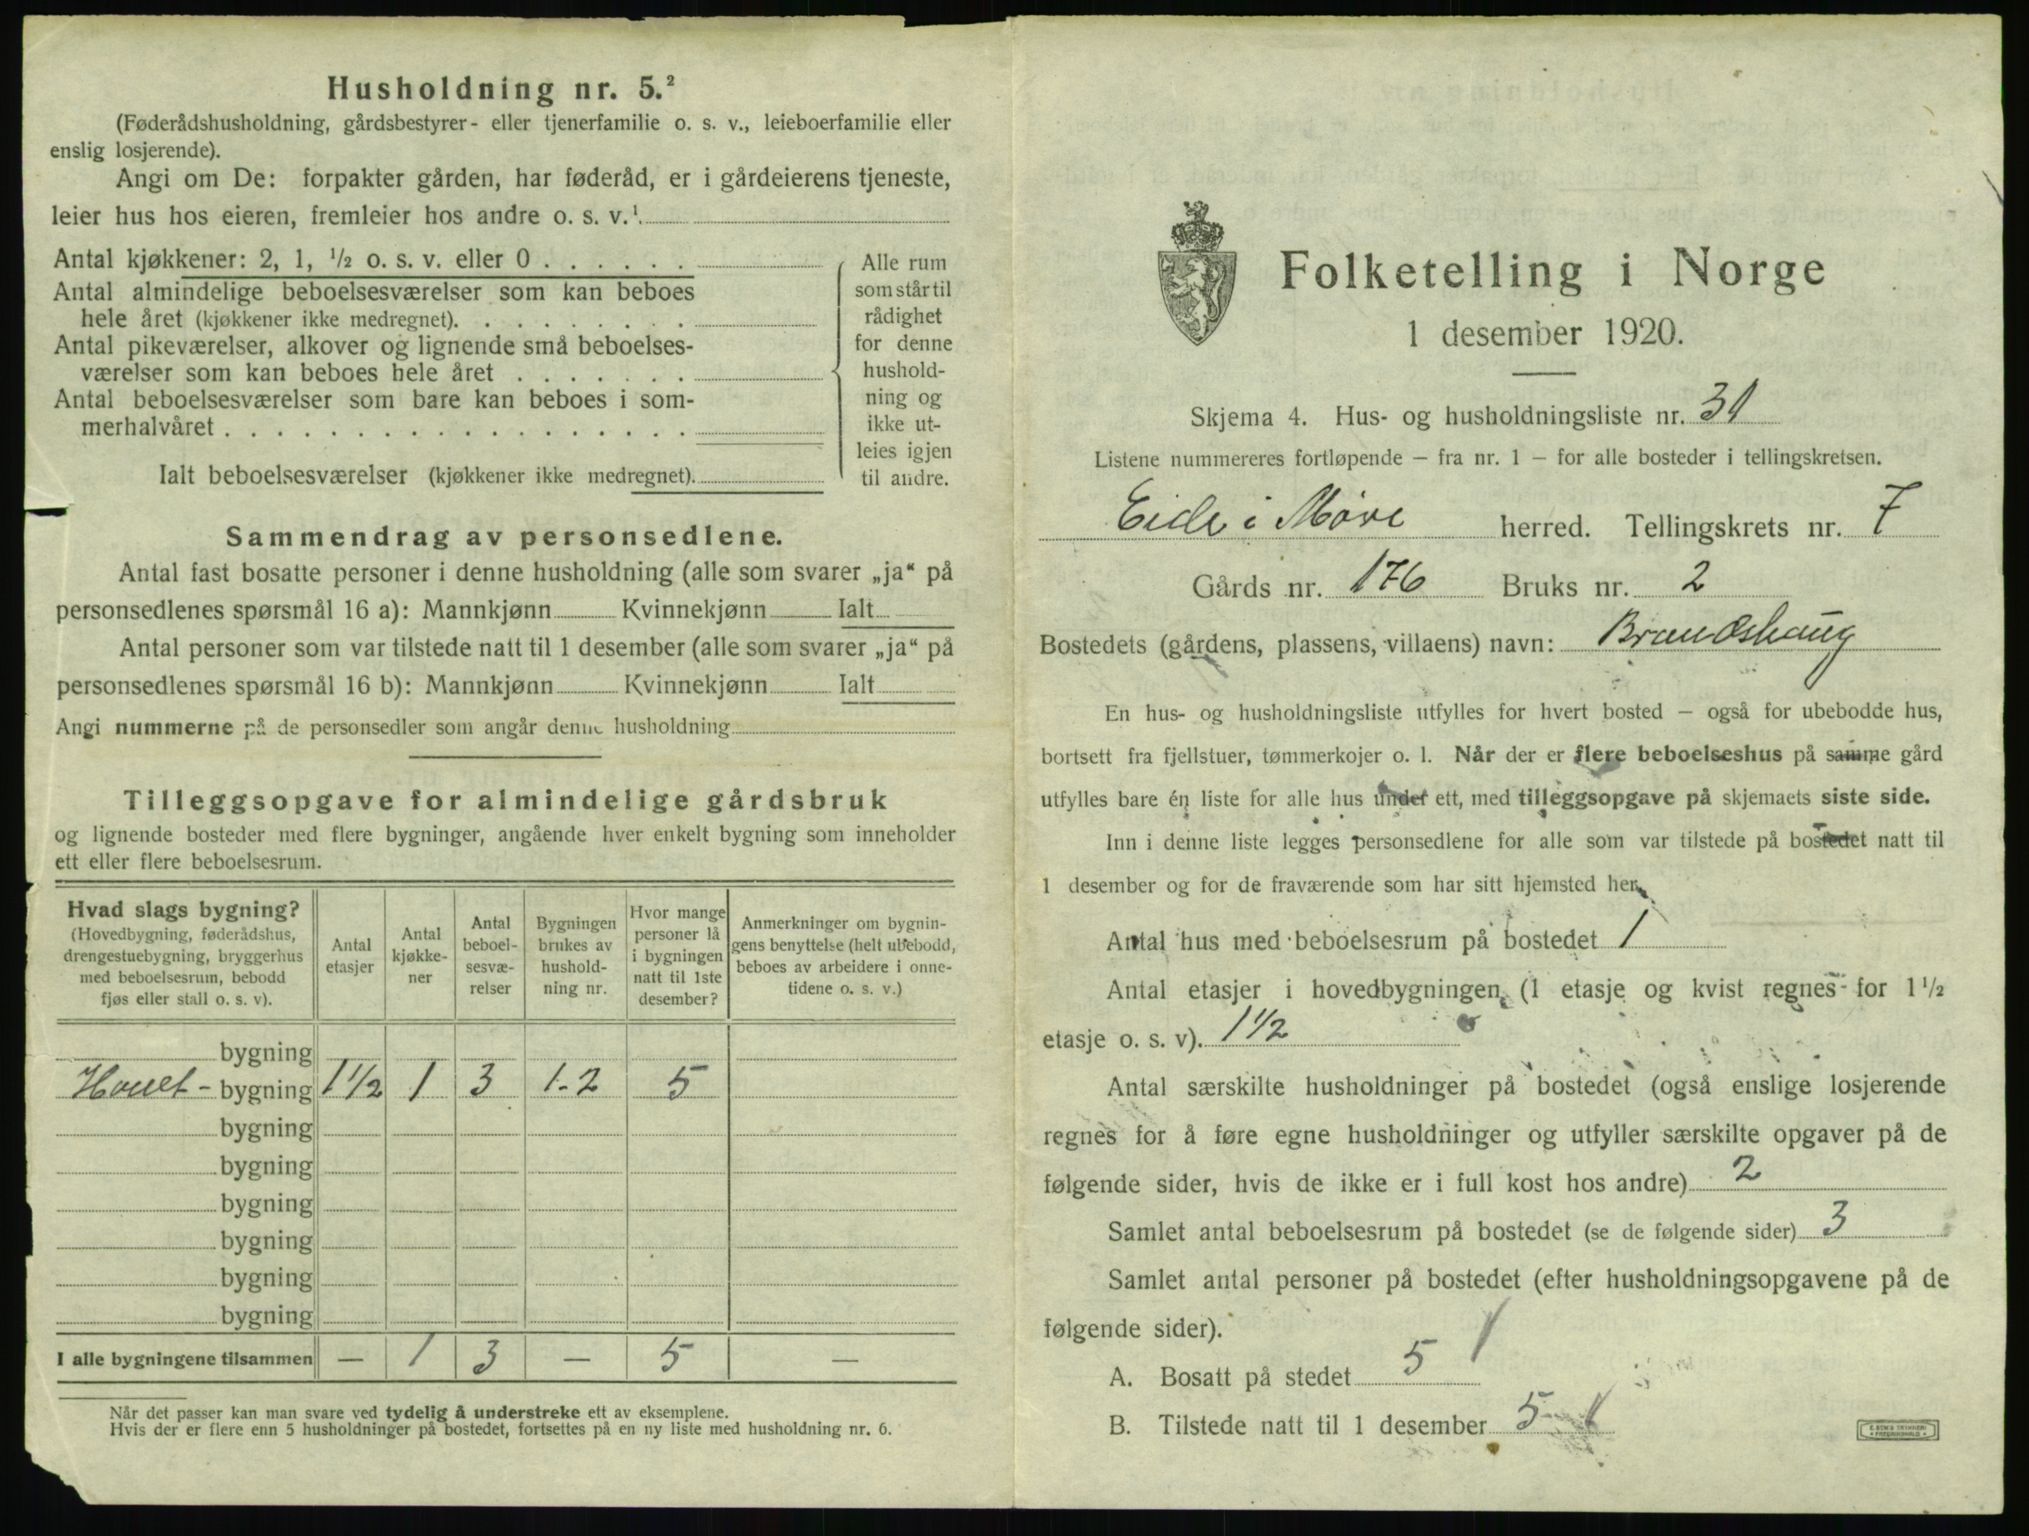 Husholdning nr. 5.²
(Føderådshusholdning, gårdsbestyrer- eller tjenerfamilie o. s. v., leieboerfamilie eller
enslig losjerende).
Angi om De: forpakter gården, har føderåd, er i gårdeierens tjeneste,
leier hus hos eieren, fremleier hos andre o. s. v.¹
Antal kjøkkener: 2, 1, ½ o. s. v. eller 0 . . . . . .
Antal almindelige beboelsesværelser som kan beboes
hele året (kjøkkener ikke medregnet). . . . . . . . .
Antal pikeværelser, alkover og lignende små beboelses-
værelser som kan beboes hele året . . . . . . .
Antal beboelsesværelser som bare kan beboes i som-
merhalvåret . . . . . . . . . . . . . . . . . .
Ialt beboelsesværelser (kjøkkener ikke medregnet).
Alle rum
som står til
rådighet
for denne
hushold-
ning og
ikke ut-
leies igjen
til andre.
Sammendrag av personsedlene.
Antal fast bosatte personer i denne husholdning (alle som svarer „ja“ på
personsedlenes spørsmål 16 a): Mannkjønn Kvinnekjønn Ialt
Antal personer som var tilstede natt til 1 desember (alle som svarer „ja“ på
personsedlenes spørsmål 16 b): Mannkjønn Kvinnekjønn Ialt
Angi nummerne på de personsedler som angår denne husholdning
Tilleggsopgave for almindelige gårdsbruk
og lignende bosteder med flere bygninger, angående hver enkelt bygning som inneholder
ett eller flere beboelsesrum.
Hvad slags bygning?
(Hovedbygning, føderådshus,
drengestuebygning, bryggerhus
med beboelsesrum, bebodd
fjøs eller stall o. s. v).
Antal
etasjer
Antal
kjøkke-
ner
Antal
beboel-
sesvæ-
relser
Bygningen
brukes av
hushold-
ning nr.
Hvor mange
personer lå
i bygningen
natt til 1ste
desember?
Anmerkninger om bygnin-
gens benyttelse (helt ubebodd,
beboes av arbeidere i onne-
tidene o. s. v.)
bygning
Hovet- bygning 1½ 1 3 1-2 5
bygning
bygning
bygning
bygning
bygning
bygning
I alle bygningene tilsammen — 1 3 — 5 —
Når det passer kan man svare ved tydelig å understreke ett av eksemplene.
Hvis der er flere enn 5 husholdninger på bostedet, fortsettes på en ny liste med husholdning nr. 6.
Folketelling i Norge
1 desember 1920.
Skjema 4. Hus- og husholdningsliste nr. 31
Listene nummereres fortløpende – fra nr. 1 – for alle bosteder i tellingskretsen.
Eide i Møre herred. Tellingskrets nr. 7
Gårds nr. 176 Bruks nr. 2
Bostedets (gårdens, plassens, villaens) navn: Brandshaug
En hus- og husholdningsliste utfylles for hvert bosted – også for ubebodde hus,
bortsett fra fjellstuer, tømmerkojer o. l. Når der er flere beboelseshus på samme gård
utfylles bare én liste for alle hus under ett, med tilleggsopgave på skjemaets siste side.
Inn i denne liste legges personsedlene for alle som var tilstede på bostedet natt til
1 desember og for de fraværende som har sitt hjemsted her.
Antal hus med beboelsesrum på bostedet 1
Antal etasjer i hovedbygningen, (1 etasje og kvist regnes for 1½
etasje o. s. v). 1½
Antal særskilte husholdninger på bostedet (også enslige losjerende
regnes for å føre egne husholdninger og utfyller særskilte opgaver på de
følgende sider, hvis de ikke er i full kost hos andre) 2
Samlet antal beboelsesrum på bostedet (se de følgende sider) 3
Samlet antal personer på bostedet (efter husholdningsopgavene på de
følgende sider).
A. Bosatt på stedet 5
B. Tilstede natt til 1 desember 5